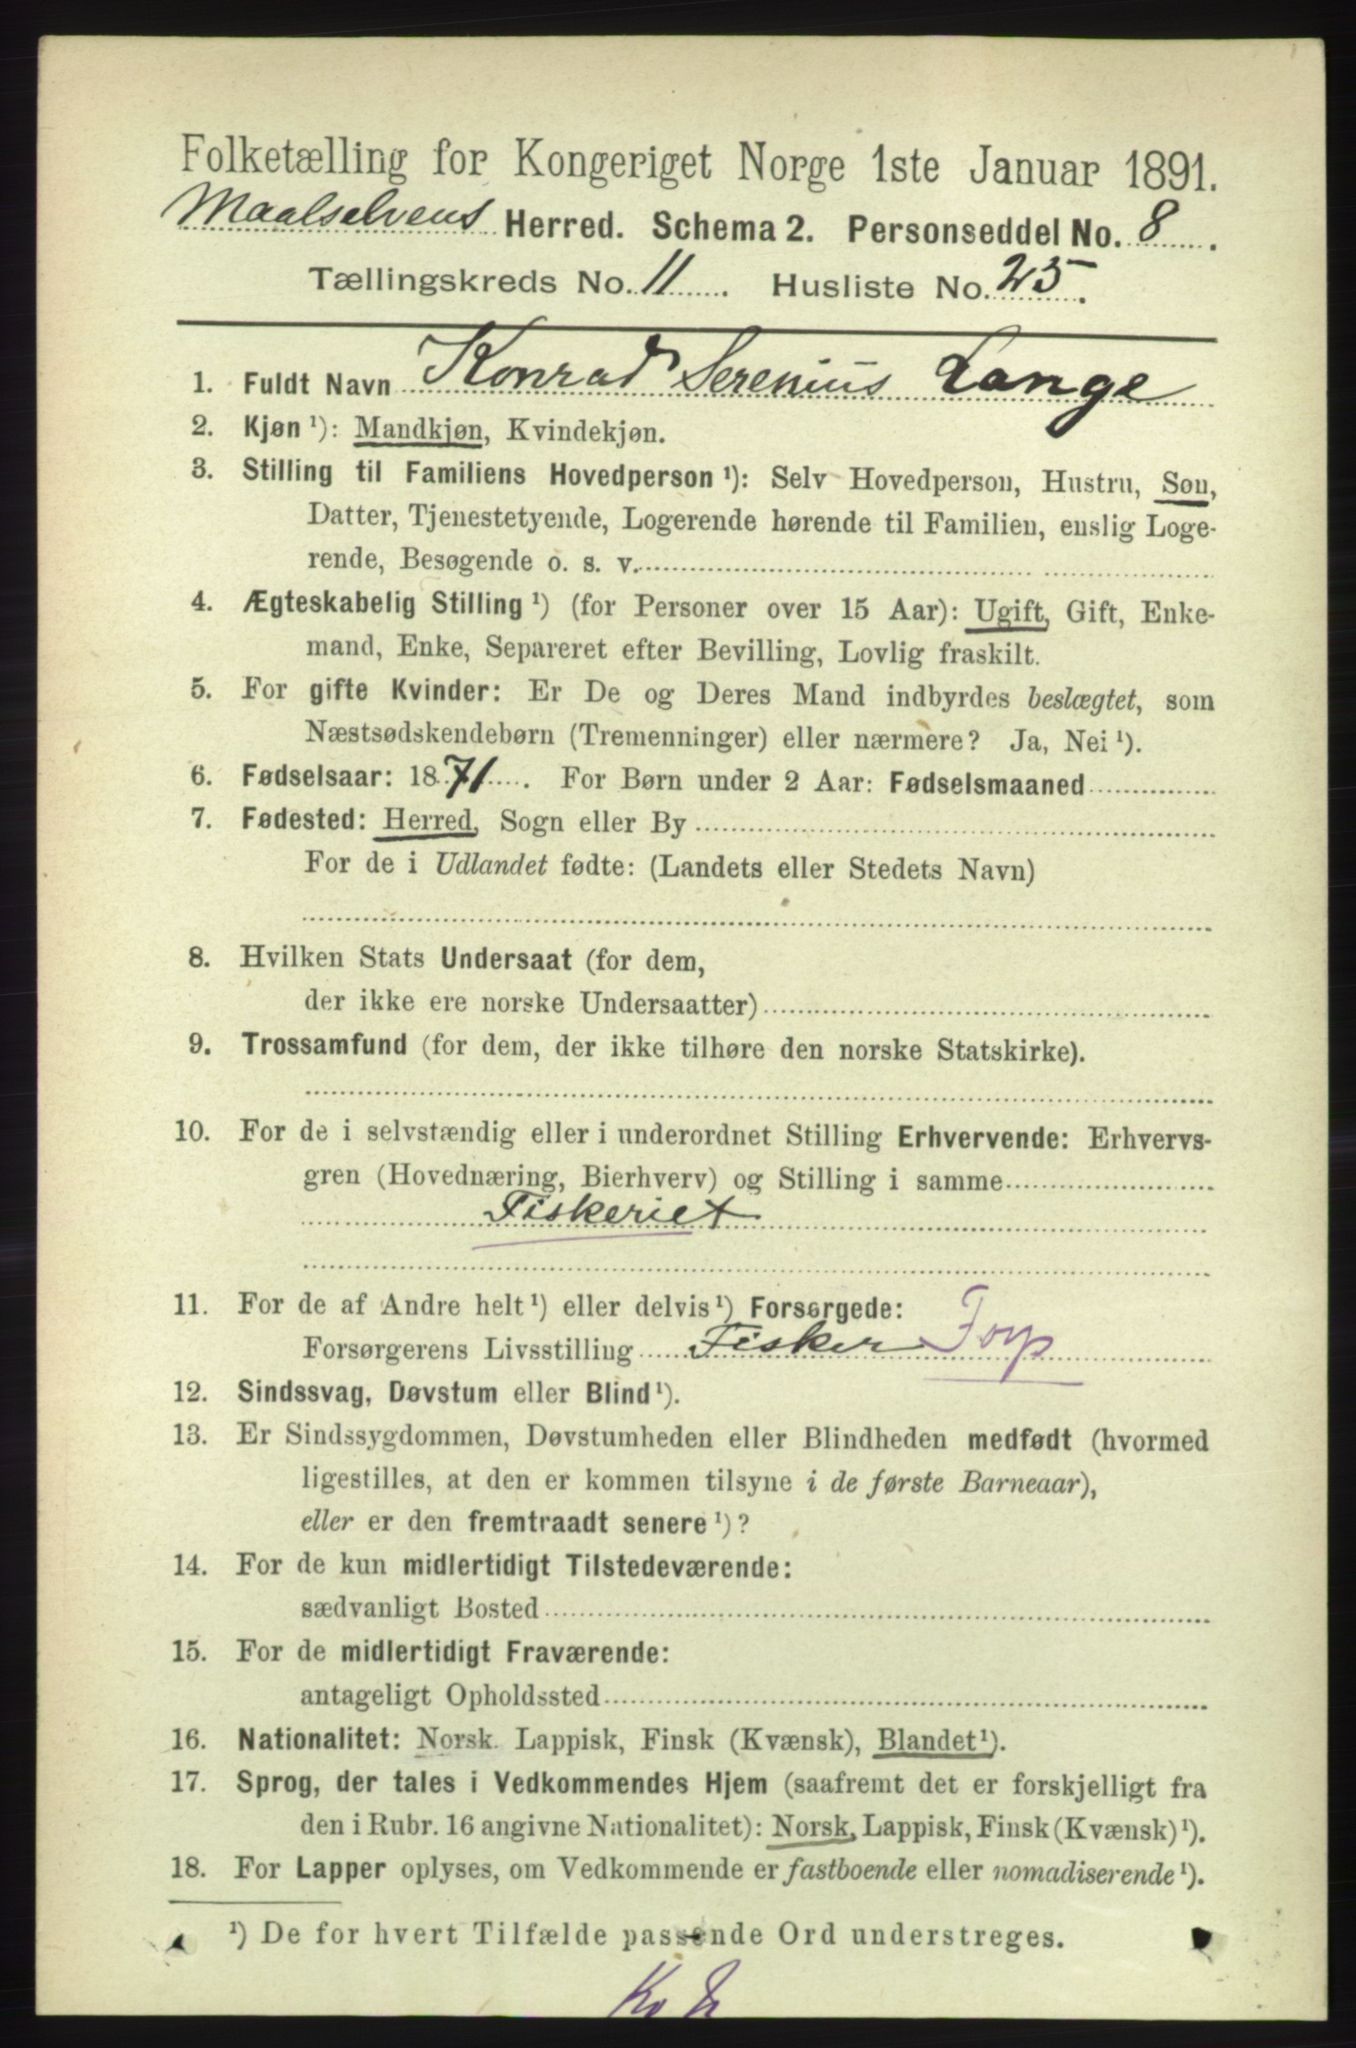 Folketælling for Kongeriget Norge 1ste Januar 1891.
Maalselvens Herred. Schema 2. Personseddel No. 8.
Tællingskreds No. 11. Husliste No. 25.
1. Fuldt Navn Konrad Serenius Lange
2. Kjøn ¹): Mandkjøn, Kvindekjøn.
3. Stilling til Familiens Hovedperson ¹): Selv Hovedperson, Hustru, Søn,
Datter, Tjenestetyende, Logerende hørende til Familien, enslig Loge-
rende, Besøgende o. s. v.
4. Ægteskabelig Stilling ¹) (for Personer over 15 Aar): Ugift, Gift, Enke-
mand, Enke, Separeret efter Bevilling, Lovlig fraskilt.
5. For gifte Kvinder: Er De og Deres Mand indbyrdes beslægtet, som
Næstsødskendebørn (Tremenninger) eller nærmere? Ja, Nei ¹).
6. Fødselsaar: 1871. For Børn under 2 Aar: Fødselsmaaned
7. Fødested: Herred, Sogn eller By
For de i Udlandet fødte: (Landets eller Stedets Navn)
8. Hvilken Stats Undersaat (for dem,
der ikke ere norske Undersaatter)
9. Trossamfund (for dem, der ikke tilhøre den norske Statskirke).
10. For de i selvstændig eller i underordnet Stilling Erhvervende: Erhvervs-
gren (Hovednæring, Bierhverv) og Stilling i samme
Fiskeriet
11. For de af Andre helt ¹) eller delvis ¹) Forsørgede:
Forsørgerens Livsstilling Fisker Forp
12. Sindssvag, Døvstum eller Blind ¹).
13. Er Sindssygdommen, Døvstumheden eller Blindheden medfødt (hvormed
ligestilles, at den er kommen tilsyne i de første Barneaar),
eller er den fremtraadt senere ¹)?
14. For de kun midlertidigt Tilstedeværende:
sædvanligt Bosted
15. For de midlertidigt Fraværende:
antageligt Opholdssted
16. Nationalitet: Norsk. Lappisk, Finsk (Kvænsk), Blandet ¹).
17. Sprog, der tales i Vedkommendes Hjem (saafremt det er forskjelligt fra
den i Rubr. 16 angivne Nationalitet): Norsk, Lappisk, Finsk (Kvænsk) ¹).
18. For Lapper oplyses, om Vedkommende er fastboende eller nomadiserende ¹).
¹) De for hvert Tilfælde passende Ord understreges.